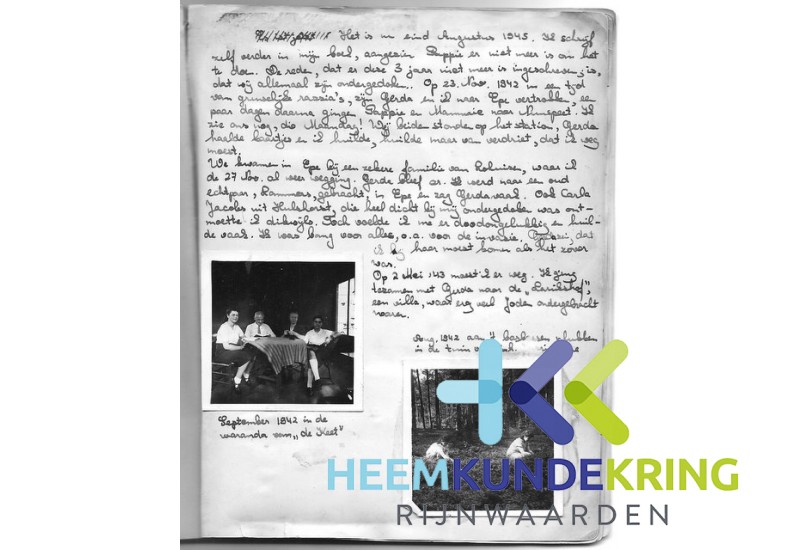 Het is nu eind Augustus 1945. Ik schrijf
zelf verder in mijn boek, aangezien Pappie er niet meer is om het
te doen. De reden, dat er deze 3 jaar niet meer is ingeschreven, is,
dat wij allemaal zijn ondergedoken. Op 23 Nov. 1942 in een tijd
van gruwelijke razzia's, zijn Gerda en ik naar Epe vertrokken, een
paar dagen daarna gingen Pappie en Mammie naar Nunspeet. Ik
zie ons nog, die Maandag! Wij beiden stonden op het station, Gerda
haalde kaartjes en ik huilde, huilde maar van verdriet, dat ik weg
moest.
We kwamen in Epe bij een zekere familie van Lohuizen, waar ik
de 27 Nov. al weer wegging. Gerda bleef er. Ik werd naar een oud
echtpaar, Rammers, gebracht, in Epe en zag Gerda vaak. Ook Carla
Jacobs uit Hulshorst, die heel dicht bij mij ondergedoken was ont-
moette ik dikwijls. Toch voelde ik me er doodongelukkig en huil-
de vaak. Ik was bang voor alles, o.a. voor de invasie, zei, dat
ik bij haar moest komen als het zover
was.
Op 2 Mei '43 moest ik er weg. Ik ging
tezamen met Gerda naar de
een villa, waar erg veel Joden ondergebracht
waren.
Aug. 1942 aan 't plukken
in de tuin
September 1942 in de
waranda van "de Keet"
HEEMKUNDEKRING
RIJNWAARDEN